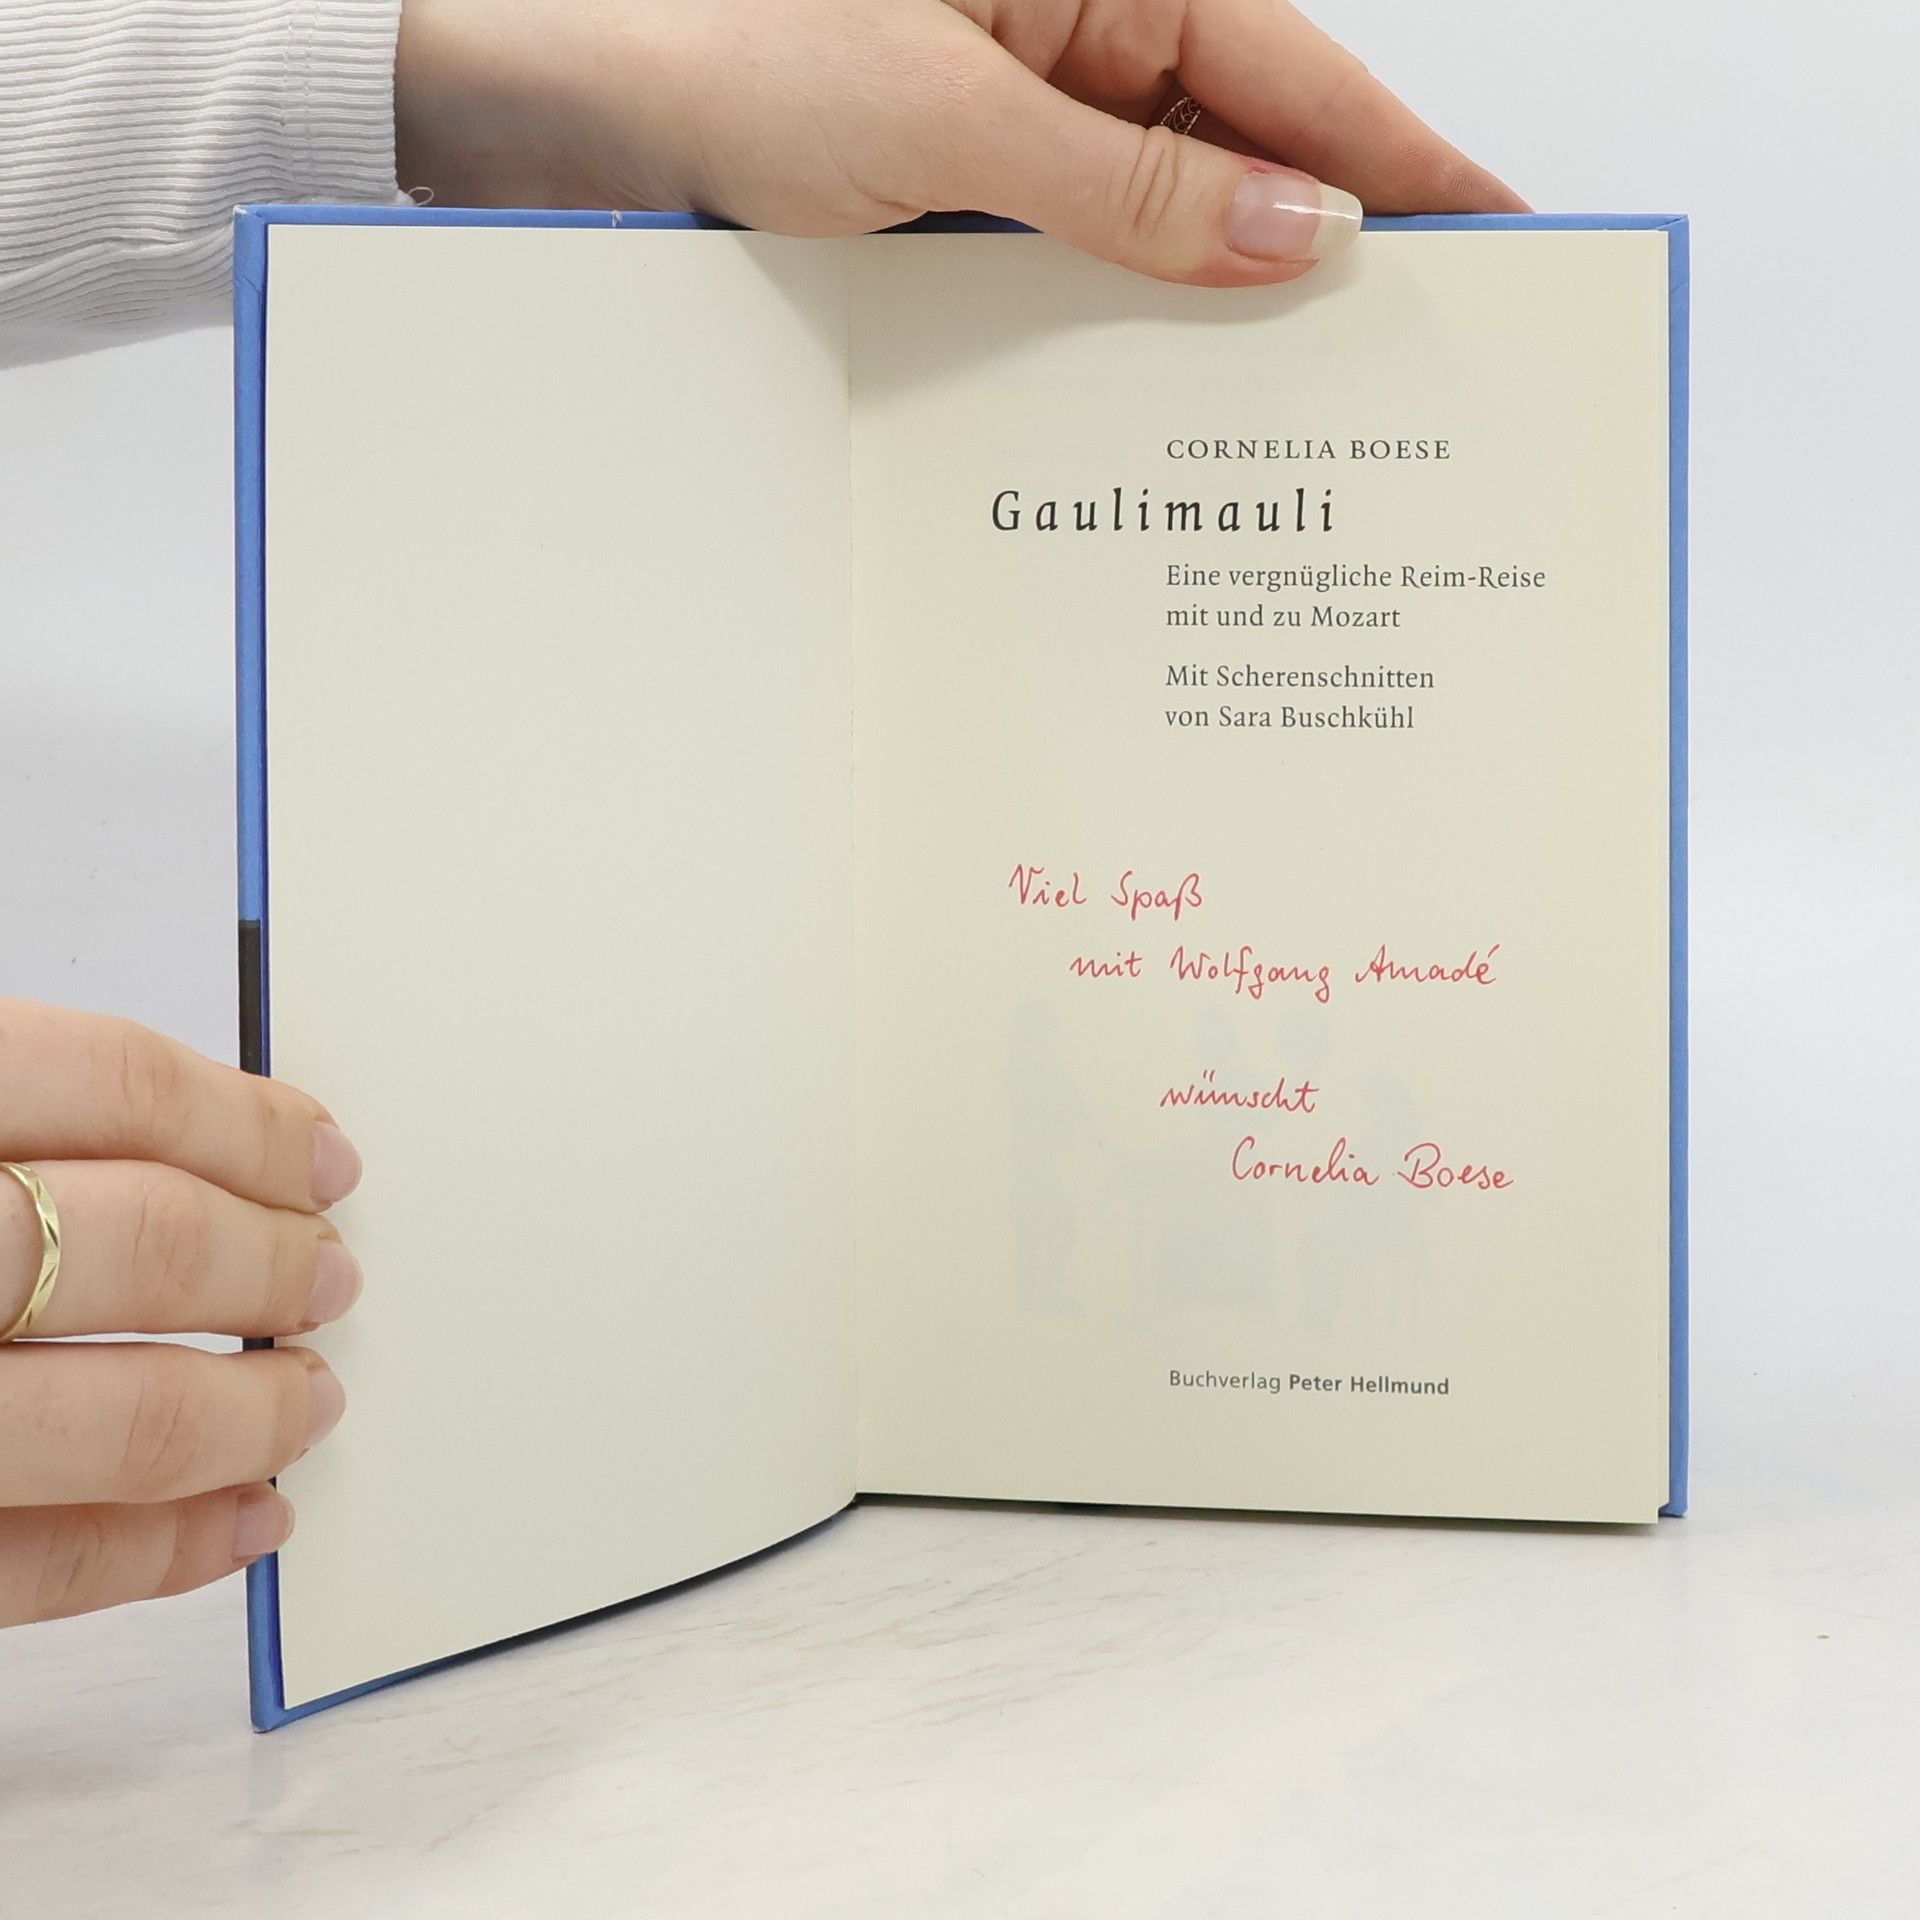 CORNELIA BOESE
Gaulimauli
Eine vergnügliche Reim-Reise
mit und zu Mozart
Mit Scherenschnitten
von Sara Buschkühl
Viel Spaß
mit Wolfgang Amadé
wünscht
Cornelia Boese
Buchverlag Peter Hellmund